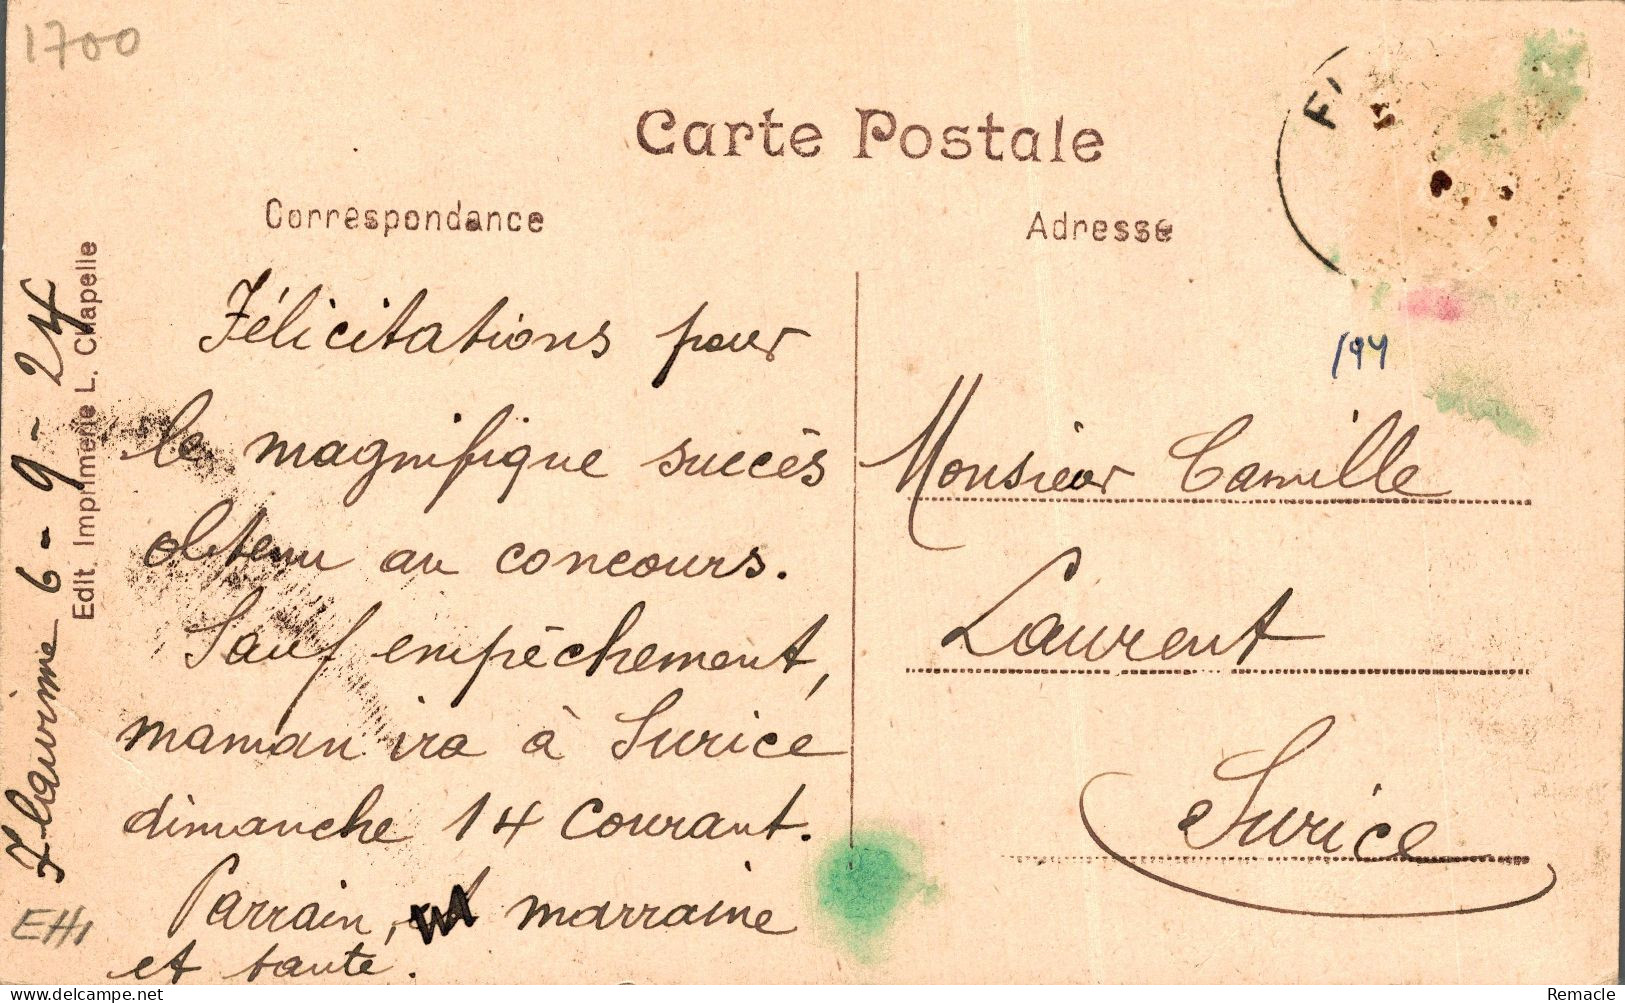 1700
Carte Postale
Correspondance
Adresse
FI
194
Félicitations pour
le magnifique succès
obtenu au concours.
Sauf empêchement,
maman ira à Surice
dimanche 14 courant.
Parrain, marraine
et tante.
Monsieur Camille
Laurent
Surice
Flavinne 6-9-24
Edit. Imprimerie L. Chapelle
EHI
Remacle